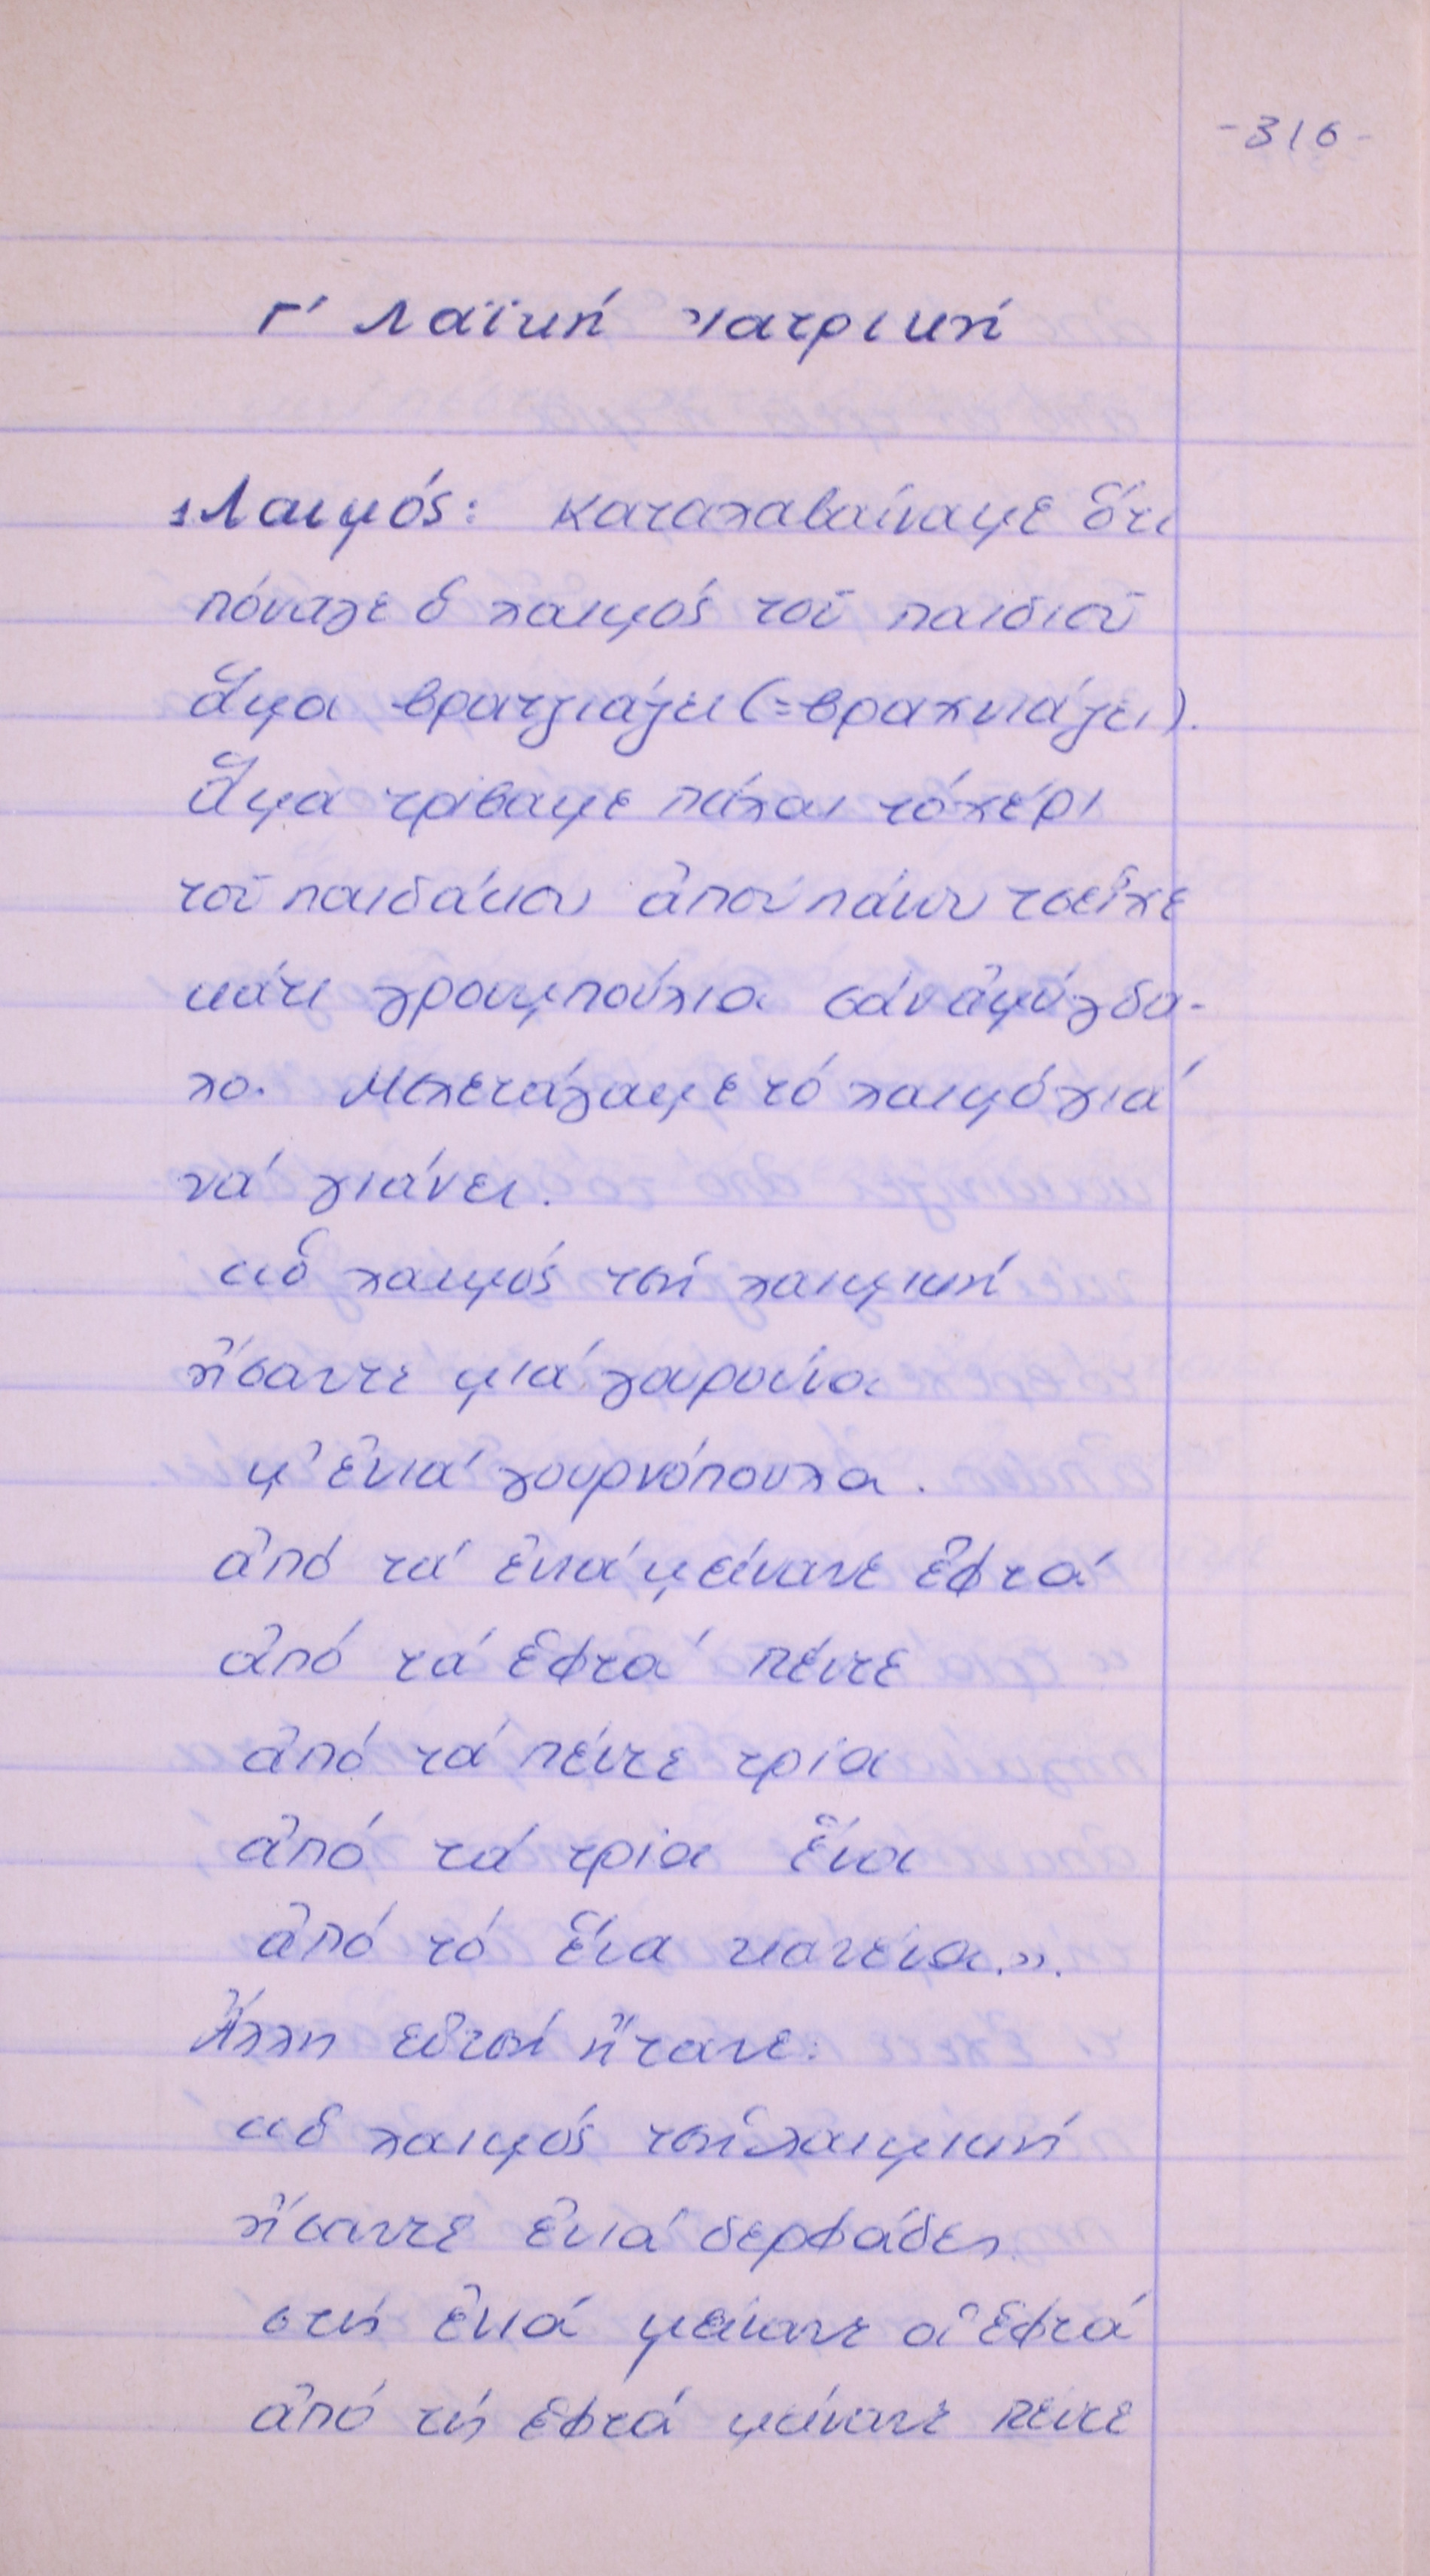 -316-
Γ' Λαϊκή Ἰατρική
1 Λαιμός: Καταλαβαίναμε ὅτι
πόναγε ὁ λαιμός τοῦ παιδιοῦ
ἅμα βρατζιάζει (=βραχνιάζει).
Ἅμα τρίβαμε πάλαι τό χέρι
τοῦ παιδάκιου ἀπού πάνου τσεῖχε
κάτι γρουμπούλια σάν ἀμύγδα-
λο. Μελετάγαμε τό λαιμό γιά
νά γιάνει.
«Ὁ λαιμός τσή λαιμική
ἤσαντε μιά γουρούνα
μ' ἐνιά γουρνόπουλα.
ἀπό τά ἐνιά μείνανε ἑφτά
ἀπό τά ἑφτά πέντε
ἀπό τά πέντε τρία
ἀπό τά τρία ἕνα
ἀπό τό ἕνα κανένα.».
Ἄλλη εὐτσή ἤτανε:
«Ὁ λαιμός τσή λαιμική
ἤσαντε ἐνιά δερφάδες
στίς ἐνιά μείνανε οἱ ἑφτά
ἀπό τίς ἑφτά μείνανε πέντε